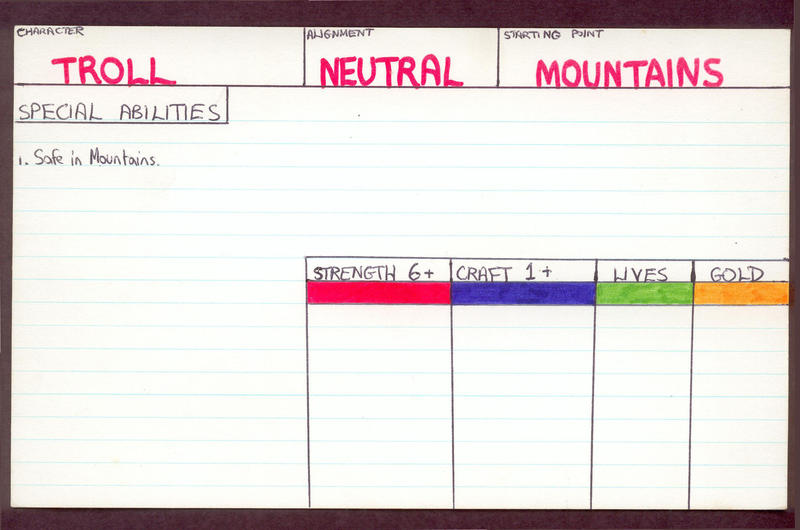 CHARACTER ALIGNMENT STARTING POINT
TROLL NEUTRAL MOUNTAINS
SPECIAL ABILITIES
1. Safe in Mountains.
STRENGTH 6+ CRAFT 1+ LIVES GOLD